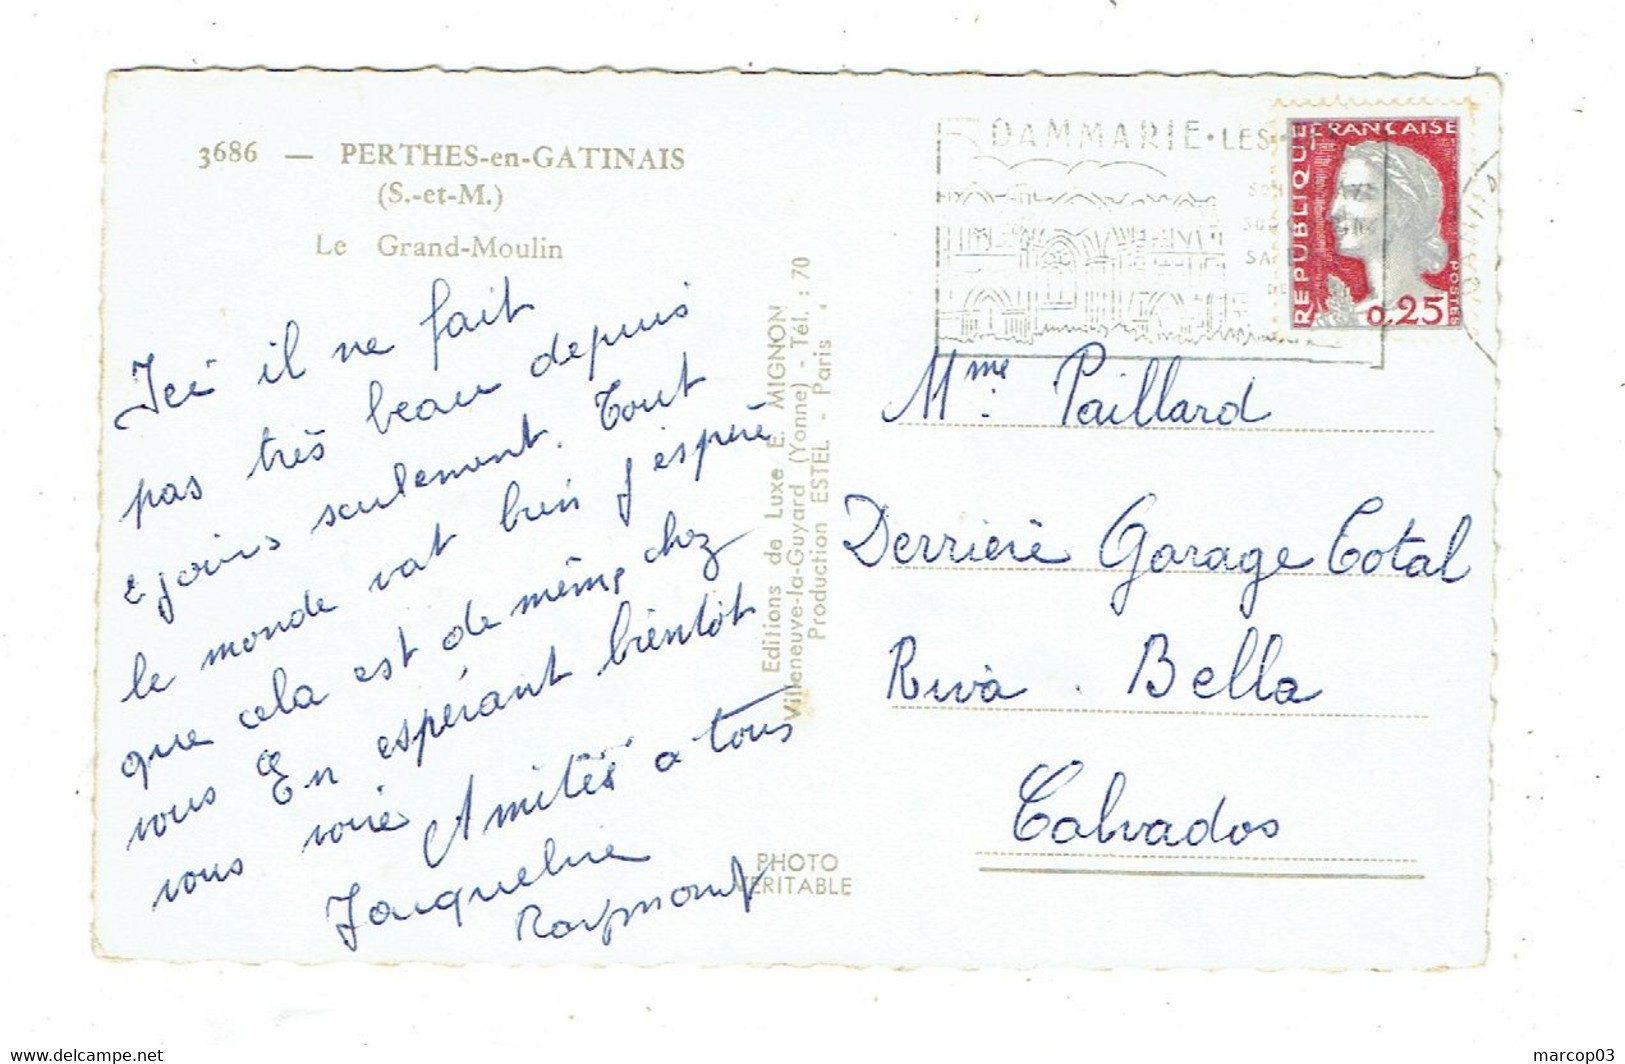 3686 — PERTHES-en-GATINAIS
(S.-et-M.)
Le Grand-Moulin
Ici il ne fait
pas très beau depuis
2 jours seulement. Tout
le monde vat bien j'espère
que cela est de même chez
vous En espérant bientôt
vous voire Amitiés a tous
Jacqueline
Raymond
Editions de Luxe E. MIGNON
Villeneuve-la-Guyard (Yonne) - Tél. : 70
Production ESTEL - Paris
PHOTO
VERITABLE
DAMMARIE • LES
SON
SA
REPUBLIQUE FRANCAISE
POSTES
0,25
Mme. Paillard
Derrière Garage Total
Riva . Bella
Calvados
www.delcampe.net
marcop03